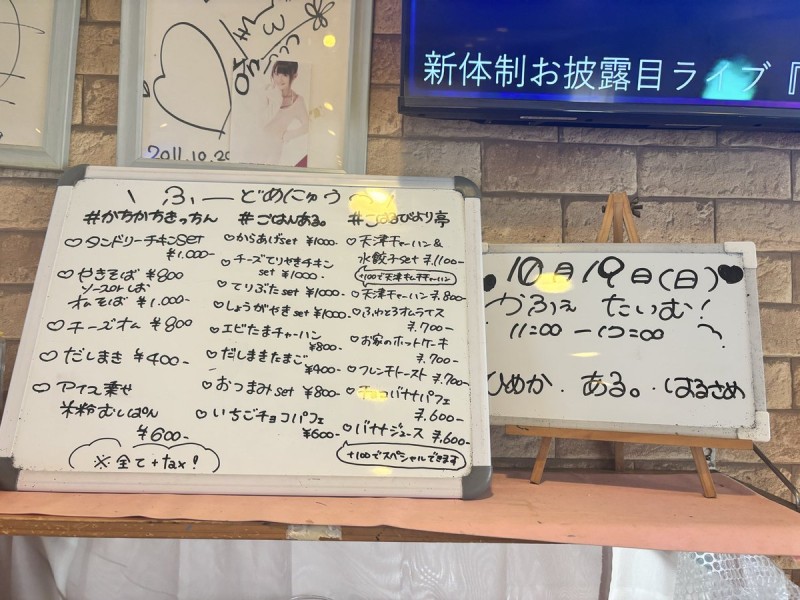 新体制お披露目ライブ『
2011.10.20
ふーどめにゅう
#かちかちきっちん
♡タンドリーチキンSET
¥1.000-
♡やきそば ¥800
ソースorしお
オムそば ¥1.000-
♡チーズオム ¥800
♡だしまき ¥400-
♡アイス乗せ
米粉むしぱん
¥600-
※全て+tax!
#ごはんある。
♡からあげset ¥1000-
♡チーズてりやきチキン
set ¥1000-
♡てりぶたset ¥1000-
♡しょうがやきset ¥1000-
♡エビたまチャーハン
¥800-
♡だしまきたまご
¥400-
♡おつまみset ¥800-
♡いちごチョコパフェ
¥600-
#こはるびより亭
♡天津チャーハン&
水餃子set ¥1100-
+100で天津チャーハン
♡天津チャーハン ¥800-
♡ふわとろオムライス
¥700-
♡お家のホットケーキ
¥700-
♡フレンチトースト ¥700-
♡チョコバナナパフェ
¥600-
♡バナナジュース ¥600-
+100でスペシャルできます
10月19日(日)♥
かふぇ たいむ!
11:00-17:00
ひめか . ある。. はるさめ